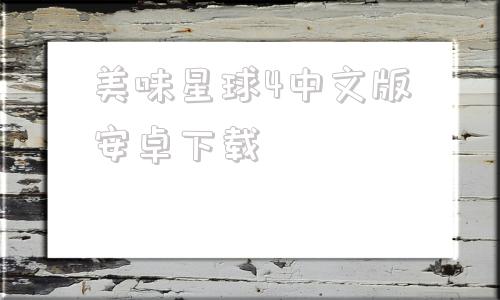 美味星球4中文版
安卓下载